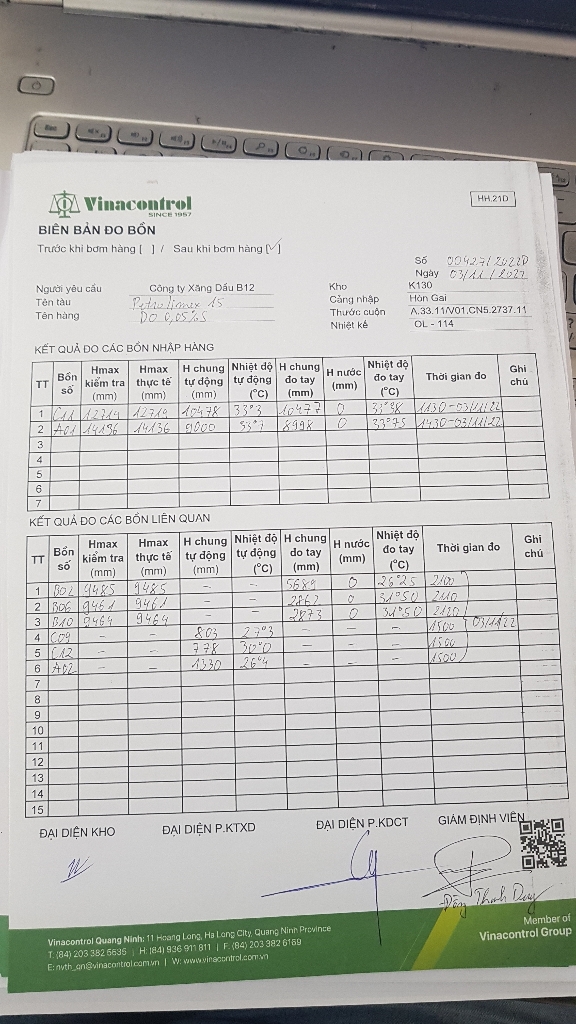 Vinacontrol
SINCE 1957
HH.21D
BIÊN BẢN ĐO BỒN
Trước khi bơm hàng [ ] / Sau khi bơm hàng [✓]
Số 00427/2022D
Ngày 03/11/2022
Người yêu cầu Công ty Xăng Dầu B12 Kho K130
Tên tàu Petrolimex 15 Cảng nhập Hòn Gai
Tên hàng DO 0,05%S Thước cuộn A.33.11/V01,CN5.2737.11
Nhiệt kế OL - 114
KẾT QUẢ ĐO CÁC BỒN NHẬP HÀNG
TT Bồn số Hmax kiểm tra (mm) Hmax thực tế (mm) H chung tự động (mm) Nhiệt độ tự động (°C) H chung đo tay (mm) H nước (mm) Nhiệt độ đo tay (°C) Thời gian đo Ghi chú
1 C11 12714 12714 10478 33°3 10477 0 33°38 1130-03/11/22
2 A01 14136 14136 9000 33°7 8998 0 33°75 1430-03/11/22
3
4
5
6
7
KẾT QUẢ ĐO CÁC BỒN LIÊN QUAN
TT Bồn số Hmax kiểm tra (mm) Hmax thực tế (mm) H chung tự động (mm) Nhiệt độ tự động (°C) H chung đo tay (mm) H nước (mm) Nhiệt độ đo tay (°C) Thời gian đo Ghi chú
1 B02 9485 9485 - - 5689 0 26°25 2100
2 B06 9461 9461 - - 2862 0 31°50 2110
3 B10 9464 9464 - - 2873 0 31°50 2120
4 C09 - - 803 27°3 - - - 1500 03/11/22
5 C12 - - 778 30°0 - - - 1500
6 A02 - - 1330 26°4 - - - 1500
7
8
9
10
11
12
13
14
15
ĐẠI DIỆN KHO ĐẠI DIỆN P.KTXD ĐẠI DIỆN P.KDCT GIÁM ĐỊNH VIÊN
Thanh Duy
Member of
Vinacontrol Group
Vinacontrol Quang Ninh: 11 Hoang Long, Ha Long City, Quang Ninh Province
T: (84) 203 382 5635 | H: (84) 936 911 811 | F: (84) 203 382 6169
E: nvth_qn@vinacontrol.com.vn | W: www.vinacontrol.com.vn